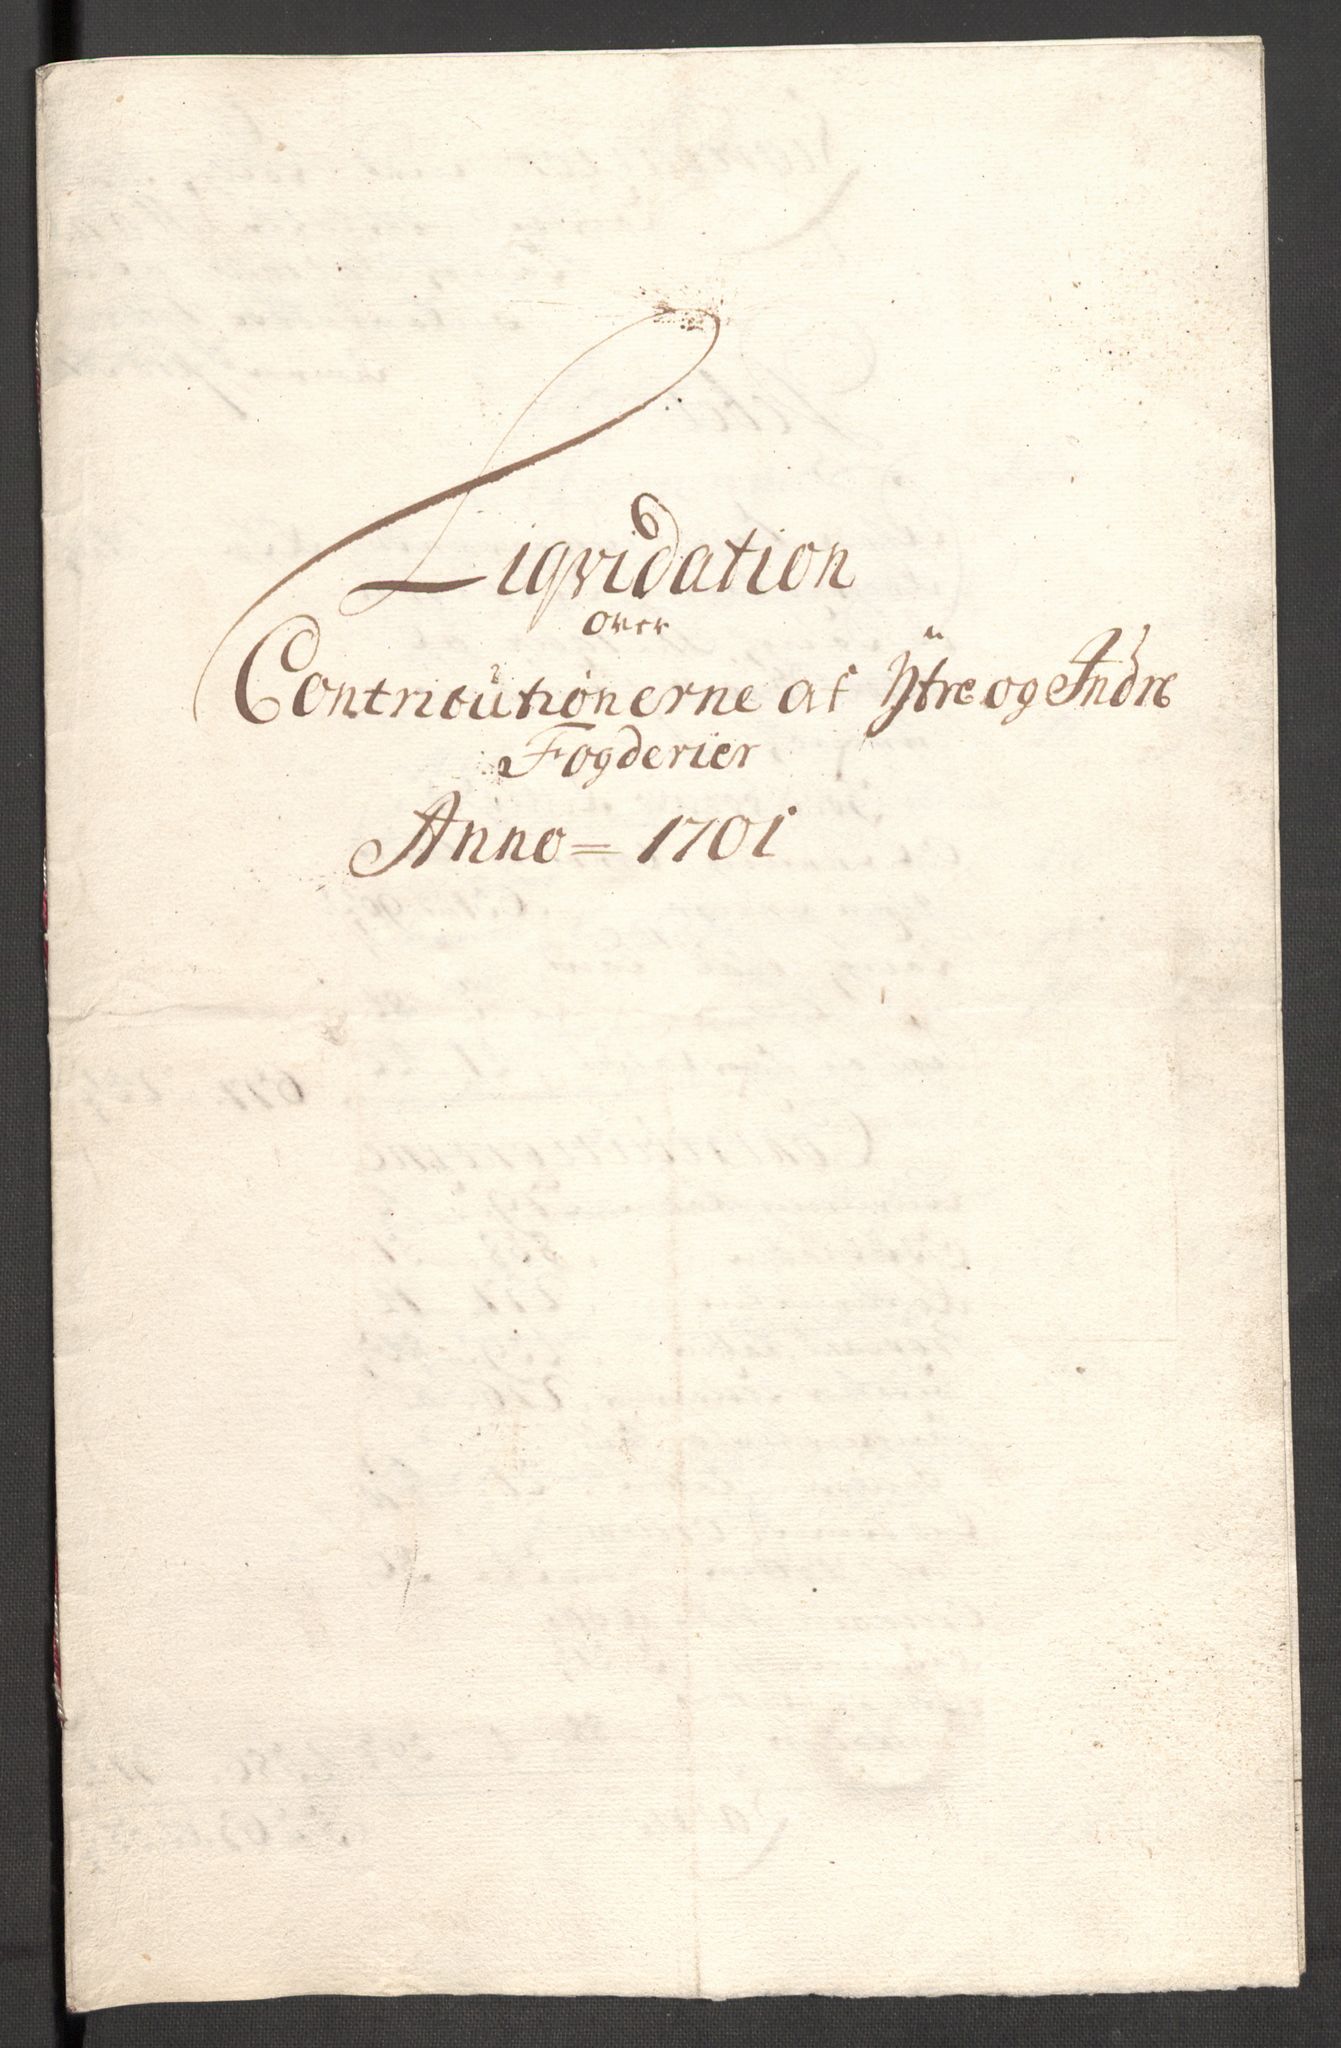 Liqvidation
over
Contributionerne af Ÿtre og Indre
Fogderier
Anno = 1701